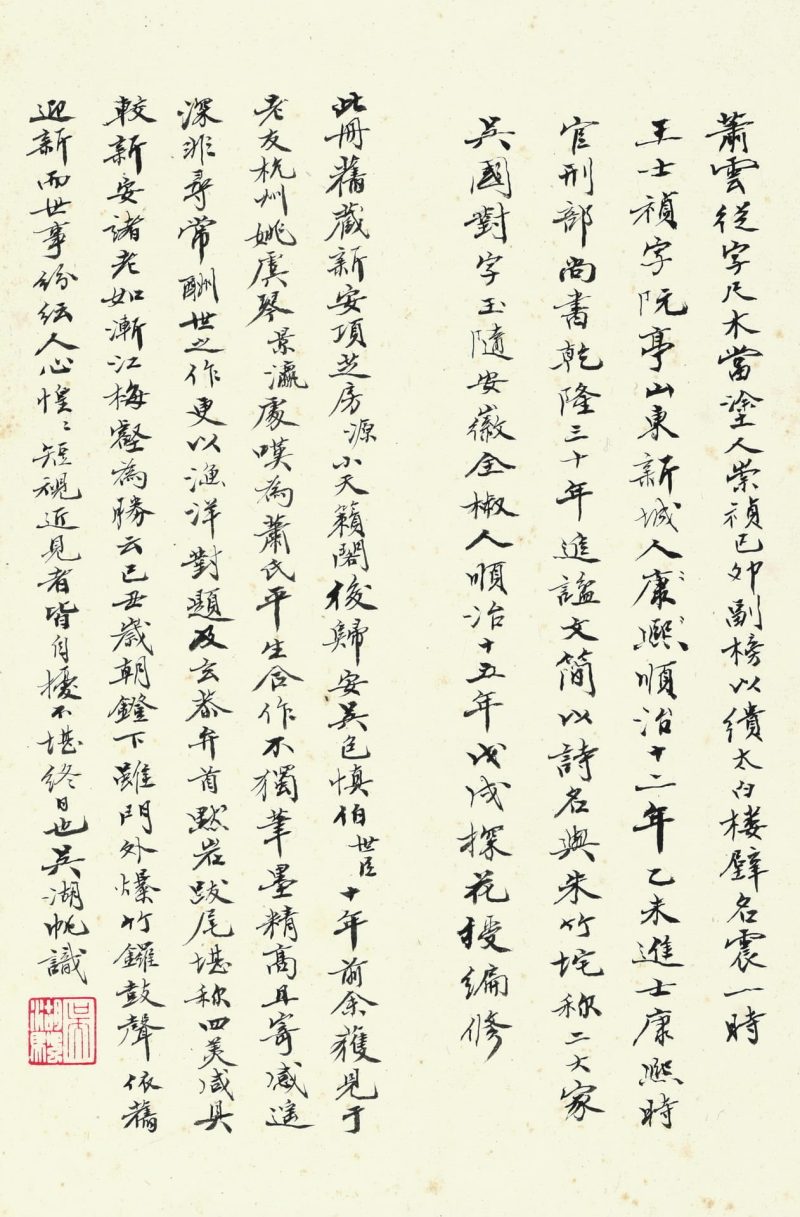 蕭雲從字尺木當塗人崇禎己卯副榜以繢太白樓壁名震一時
王士禎字阮亭山東新城人康熙順治十二年乙未進士康熙時
官刑部尚書乾隆三十年進諡文簡以詩名與朱竹垞称二大家
吳國對字玉隨安徽全椒人順治十五年戊戌探花授編修
此冊舊藏新安項芝房源小天籟閣後歸安吳包慎伯世臣十年前余獲見于
老友杭州姚虞琴景瀛處嘆為蕭氏平生合作不獨筆墨精高且寄感遙
深非尋常酬世之作更以漁洋對題及玄恭弁首默岩跋尾堪称四美咸具
較新安諸老如漸江梅壑為勝云己丑歲朝鐙下雖門外爆竹鑼鼓聲依舊
迎新而世事紛紜人心惶〻短視近見者皆自擾不堪終日也吳湖帆識
吳湖帆